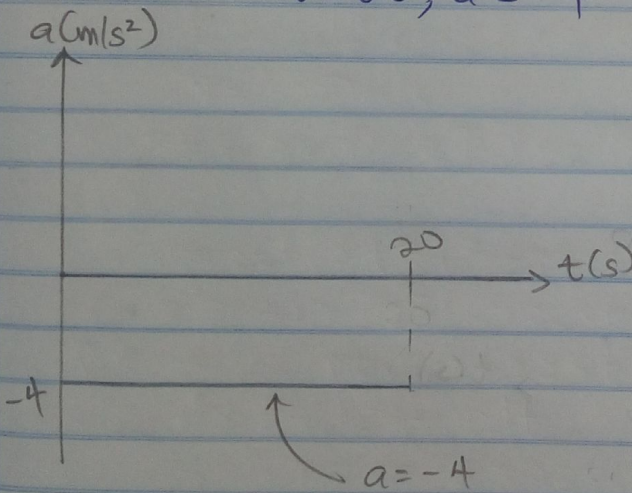 a(m/s²)
20
t(s)
-4
a = -4